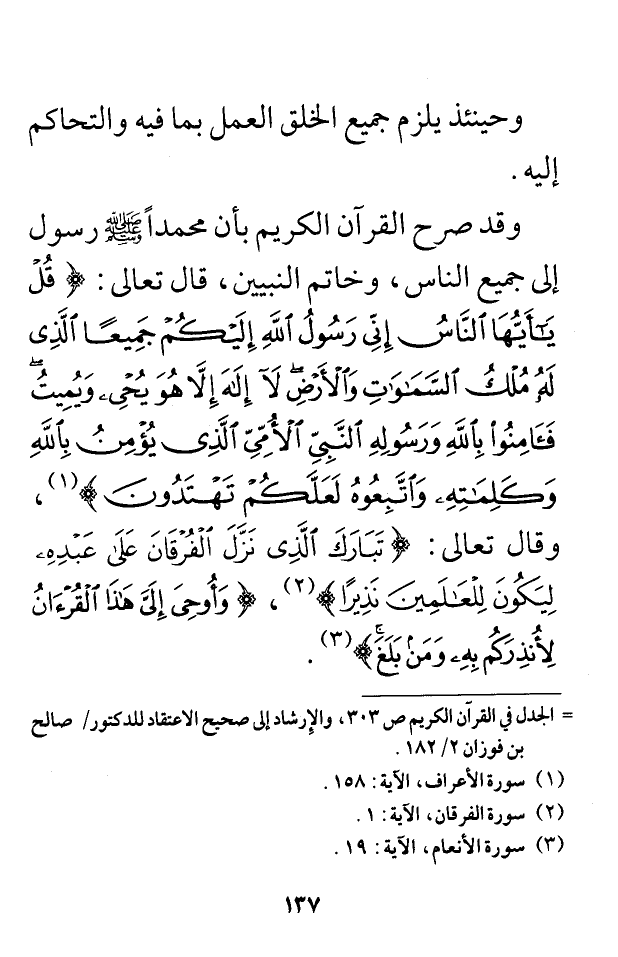 وحينئذ يلزم جميع الخلق العمل بما فيه والتحاكم
إليه .
وقد صرح القرآن الكريم بأن محمداً ﷺ رسول
إلى جميع الناس، وخاتم النبيين، قال تعالى: ﴿ قُلْ
يَـٰٓأَيُّهَا ٱلنَّاسُ إِنِّى رَسُولُ ٱللَّهِ إِلَيْكُمْ جَمِيعًا ٱلَّذِى
لَهُۥ مُلْكُ ٱلسَّمَـٰوَٰتِ وَٱلْأَرْضِۖ لَآ إِلَـٰهَ إِلَّا هُوَ يُحْىِۦ وَيُمِيتُۖ
فَـَٔامِنُوا۟ بِٱللَّهِ وَرَسُولِهِ ٱلنَّبِىِّ ٱلْأُمِّىِّ ٱلَّذِى يُؤْمِنُ بِٱللَّهِ
وَكَلِمَـٰتِهِۦ وَٱتَّبِعُوهُ لَعَلَّكُمْ تَهْتَدُونَ ﴾(١)،
وقال تعالى: ﴿ تَبَارَكَ ٱلَّذِى نَزَّلَ ٱلْفُرْقَانَ عَلَىٰ عَبْدِهِۦ
لِيَكُونَ لِلْعَـٰلَمِينَ نَذِيرًا ﴾(٢)، ﴿ وَأُوحِىَ إِلَىَّ هَـٰذَا ٱلْقُرْءَانُ
لِأُنذِرَكُم بِهِۦ وَمَنۢ بَلَغَۚ ﴾(٣).
= الجدل في القرآن الكريم ص ٣٠٣، والإرشاد إلى صحيح الاعتقاد للدكتور/ صالح
بن فوزان ٢/ ١٨٢ .
(١) سورة الأعراف، الآية: ١٥٨ .
(٢) سورة الفرقان، الآية: ١ .
(٣) سورة الأنعام، الآية: ١٩ .
١٣٧